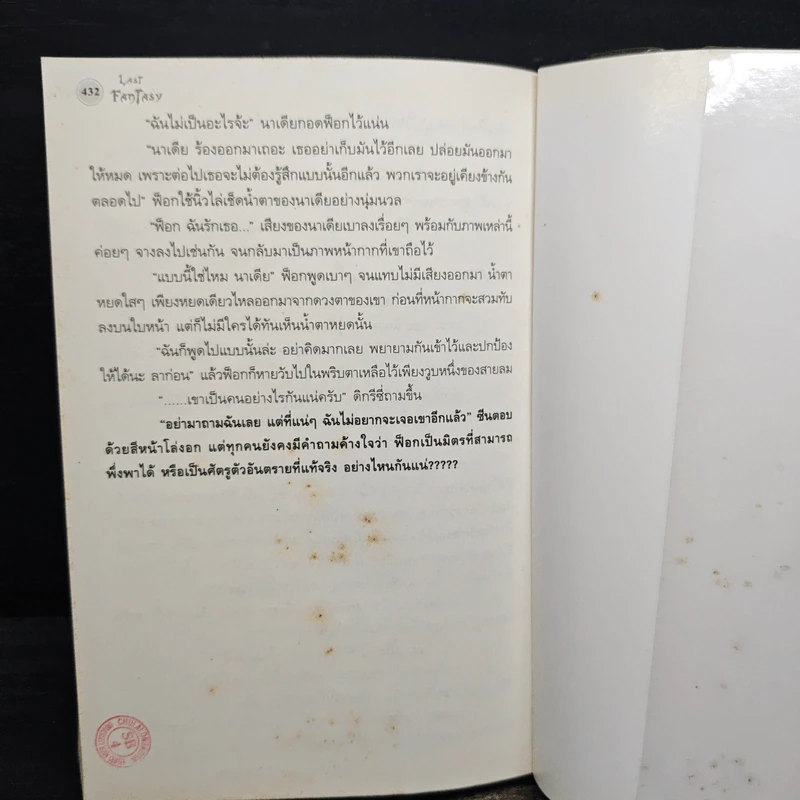 432
LAST
FANTASY
"ฉันไม่เป็นอะไรจ้ะ" นาเดียกอดฟ็อกไว้แน่น
"นาเดีย ร้องออกมาเถอะ เธออย่าเก็บมันไว้อีกเลย ปล่อยมันออกมา
ให้หมด เพราะต่อไปเธอจะไม่ต้องรู้สึกแบบนั้นอีกแล้ว พวกเราจะอยู่เคียงข้างกัน
ตลอดไป" ฟ็อกใช้นิ้วไล่เช็ดน้ำตาของนาเดียอย่างนุ่มนวล
"ฟ็อก ฉันรักเธอ..." เสียงของนาเดียเบาลงเรื่อยๆ พร้อมกับภาพเหล่านี้
ค่อยๆ จางลงไปเช่นกัน จนกลับมาเป็นภาพหน้ากากที่เขาถือไว้
"แบบนี้ใช่ไหม นาเดีย" ฟ็อกพูดเบาๆ จนแทบไม่มีเสียงออกมา น้ำตา
หยดใสๆ เพียงหยดเดียวไหลออกมาจากดวงตาของเขา ก่อนที่หน้ากากจะสวมทับ
ลงบนใบหน้า แต่ก็ไม่มีใครได้ทันเห็นน้ำตาหยดนั้น
"ฉันก็พูดไปแบบนั้นล่ะ อย่าคิดมากเลย พยายามกันเข้าไว้และปกป้อง
ให้ได้นะ ลาก่อน" แล้วฟ็อกก็หายวับไปในพริบตาเหลือไว้เพียงวูบหนึ่งของสายลม
"......เขาเป็นคนอย่างไรกันแน่ครับ" ดิกรีซี่ถามขึ้น
"อย่ามาถามฉันเลย แต่ที่แน่ๆ ฉันไม่อยากจะเจอเขาอีกแล้ว" ซีนตอบ
ด้วยสีหน้าโล่งอก แต่ทุกคนยังคงมีคำถามค้างใจว่า ฟ็อกเป็นมิตรที่สามารถ
พึ่งพาได้ หรือเป็นศัตรูตัวอันตรายที่แท้จริง อย่างไหนกันแน่?????
SB
4